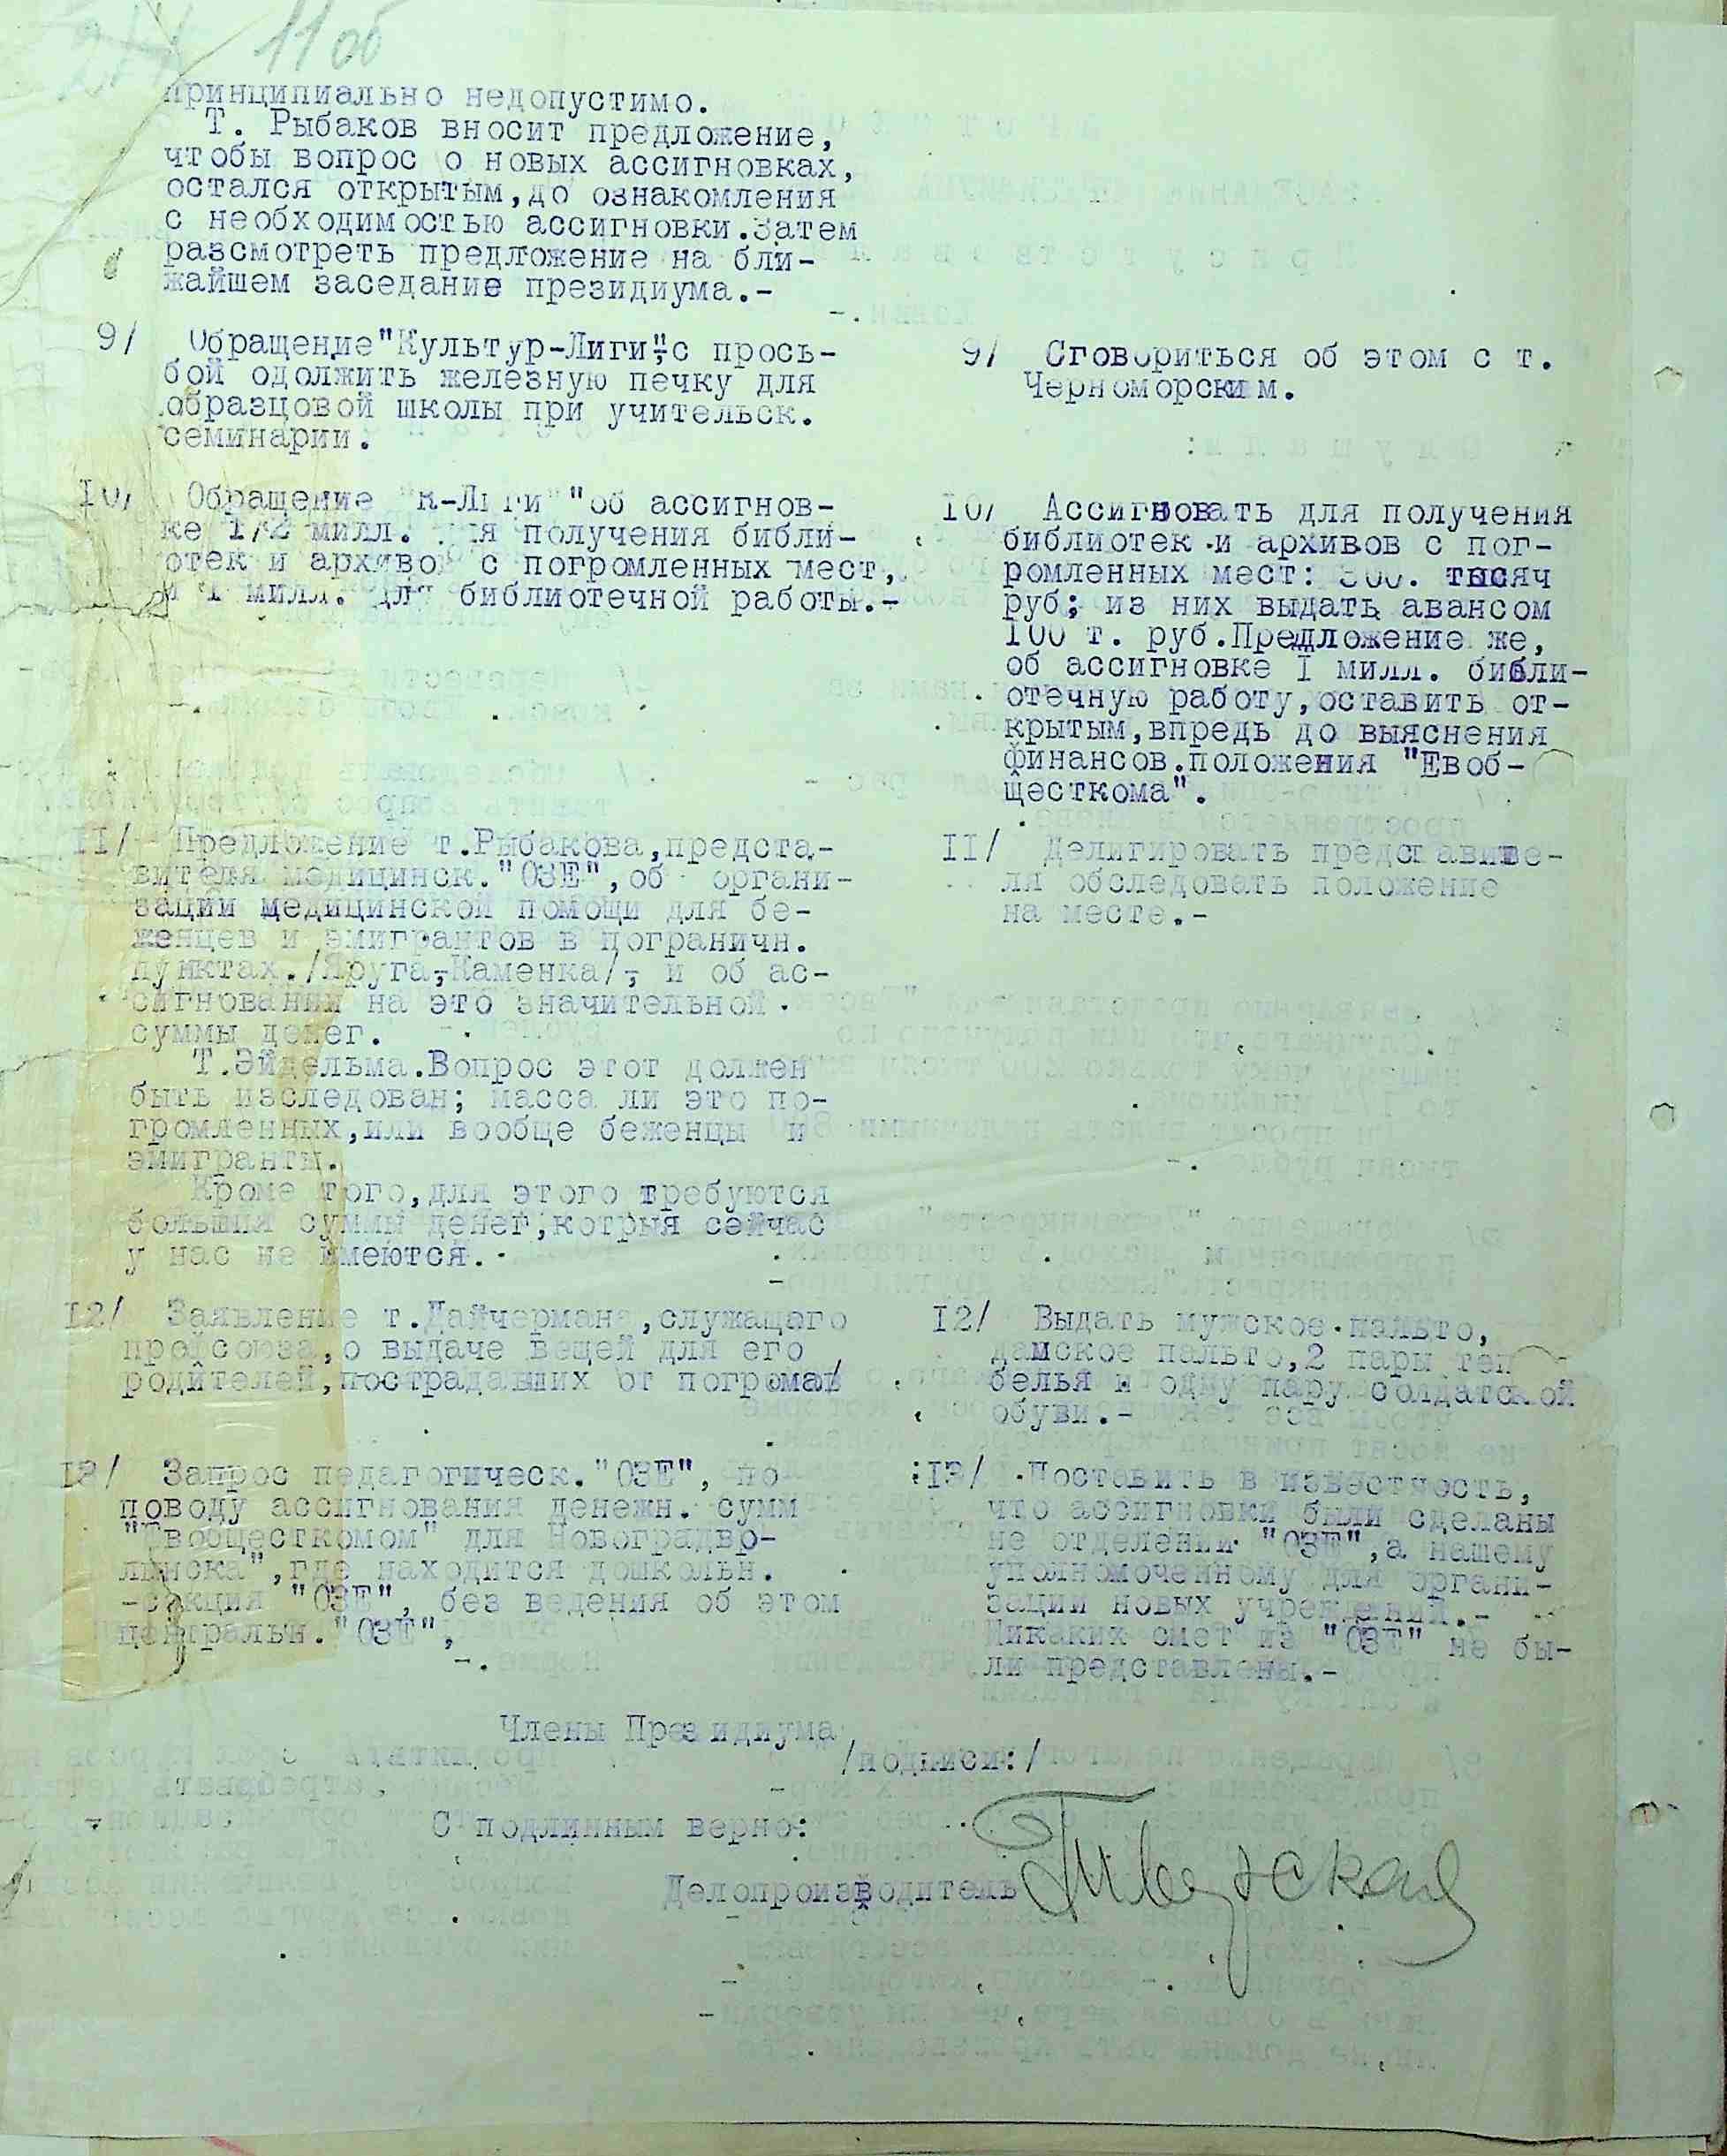 11 об
принципиально недопустимо.
Т. Рыбаков вносит предложение,
чтобы вопрос о новых ассигновках,
остался открытым,до ознакомления
с необходимостью ассигновки.Затем
разсмотреть предложение на бли-
жайшем заседание президиума.-
9/ Обращение"Культур-Лиги" с прось-
бой одолжить железную печку для
образцовой школы при учительск.
семинарии.
9/ Сговориться об этом с т.
Черноморским.
10/ Обращение "К-Лиги "об ассигнов-
ке 1/2 милл. для получения библи-
отек и архивов с погромленных мест,
и 1 милл. для библиотечной работы.-
10/ Ассигновать для получения
библиотек и архивов с пог-
ромленных мест: 300. тысяч
руб; из них выдать авансом
100 т. руб.Предложение же,
об ассигновке I милл. библи-
отечную работу,оставить от-
крытым,впредь до выяснения
финансов.положения "Евоб-
щесткома".
II/ Предложение т.Рыбакова,предста-
вителя медицинск."ОЗЕ",об органи-
зации медицинской помощи для бе-
женцев и эмигрантов в пограничн.
пунктах./Яруга,Каменка/, и об ас-
сигновании на это значительной
суммы денег.
Т.Эйдельма.Вопрос этот должен
быть изследован; масса ли это по-
громленных,или вообще беженцы и
эмигранты.
Кроме того,для этого требуются
большия суммы денег,котрыя сейчас
у нас не имеются.
II/ Делигировать представите-
ля обследовать положение
на месте.-
12/ Заявление т.Дайчермана,служащего
профсоюза,о выдаче вещей для его
родителей,пострадавших от погромов
12/ Выдать мужское пальто,
дамское пальто,2 пары теп
белья и одну пару солдатской
обуви.-
13/ Запрос педагогическ."ОЗЕ", по
поводу ассигнования денежн. сумм
"Евобщесткомом" для Новоградво-
лынска",где находится дошкольн.
-секция "ОЗЕ", без ведения об этом
центральн."ОЗЕ",
-.
13/ Поставить в известность,
что ассигновки были сделаны
не отделении "ОЗЕ",а нашему
уполномоченному для органи-
зации новых учреждений.-
Никаких смет из "ОЗЕ" не бы-
ли представлены.-
Члены Президиума
/подписи:/
С подлинным верно:
Делопроизводитель Тверская